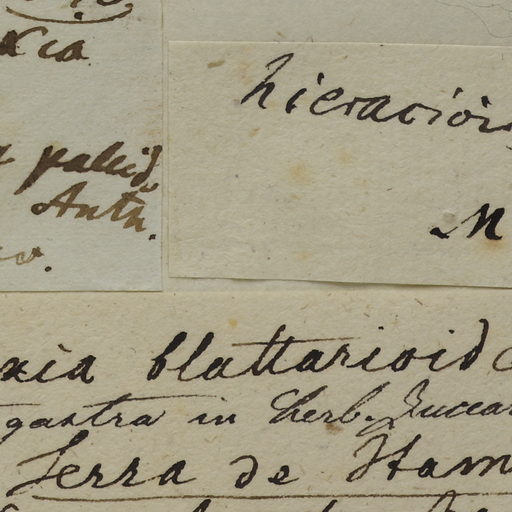 xia
pallid
Anth.
hieracioi
M
xia blattarioid
gastra in herb. Zuccar
Serra de Itam